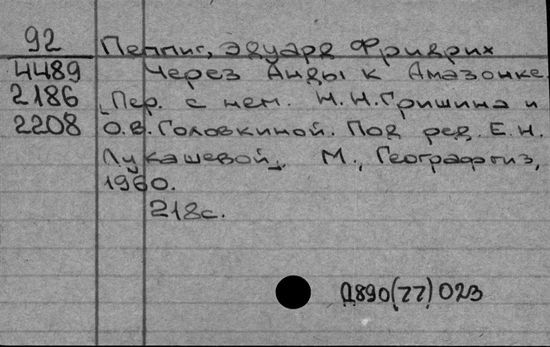 92 Пеппиг, Эдуард Фридрих
4489 Через Анды к Амазонке.
2186 [Пер. с нем. Н.Н.Гришина и
2208 О.В.Головкиной. Под ред. Е.Н.
Лукашевой]. М., Географгиз,
1960.
218с.
Д890(77)023